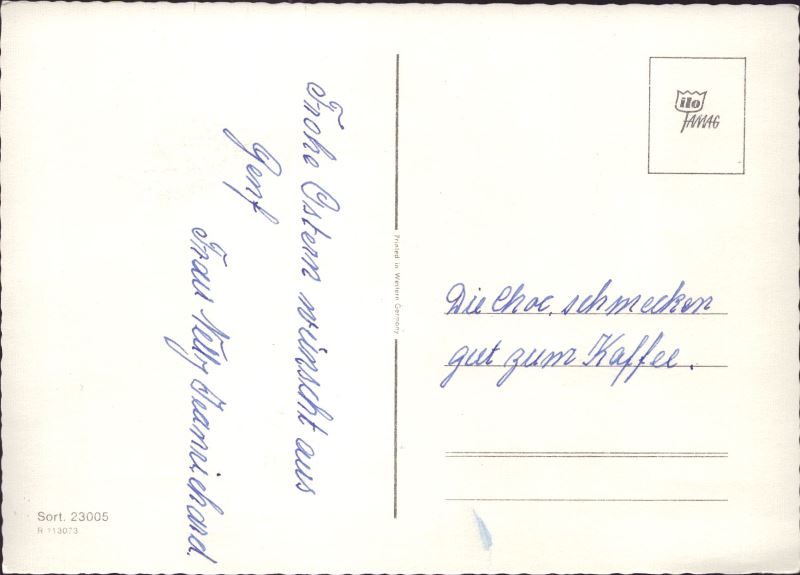 Frohe Ostern wünscht aus
Genf
Frau Nelly Jeanrichard
Printed in Western Germany
ilo
Die Choc. schmecken
gut zum Kaffee.
Sort. 23005
R 113073